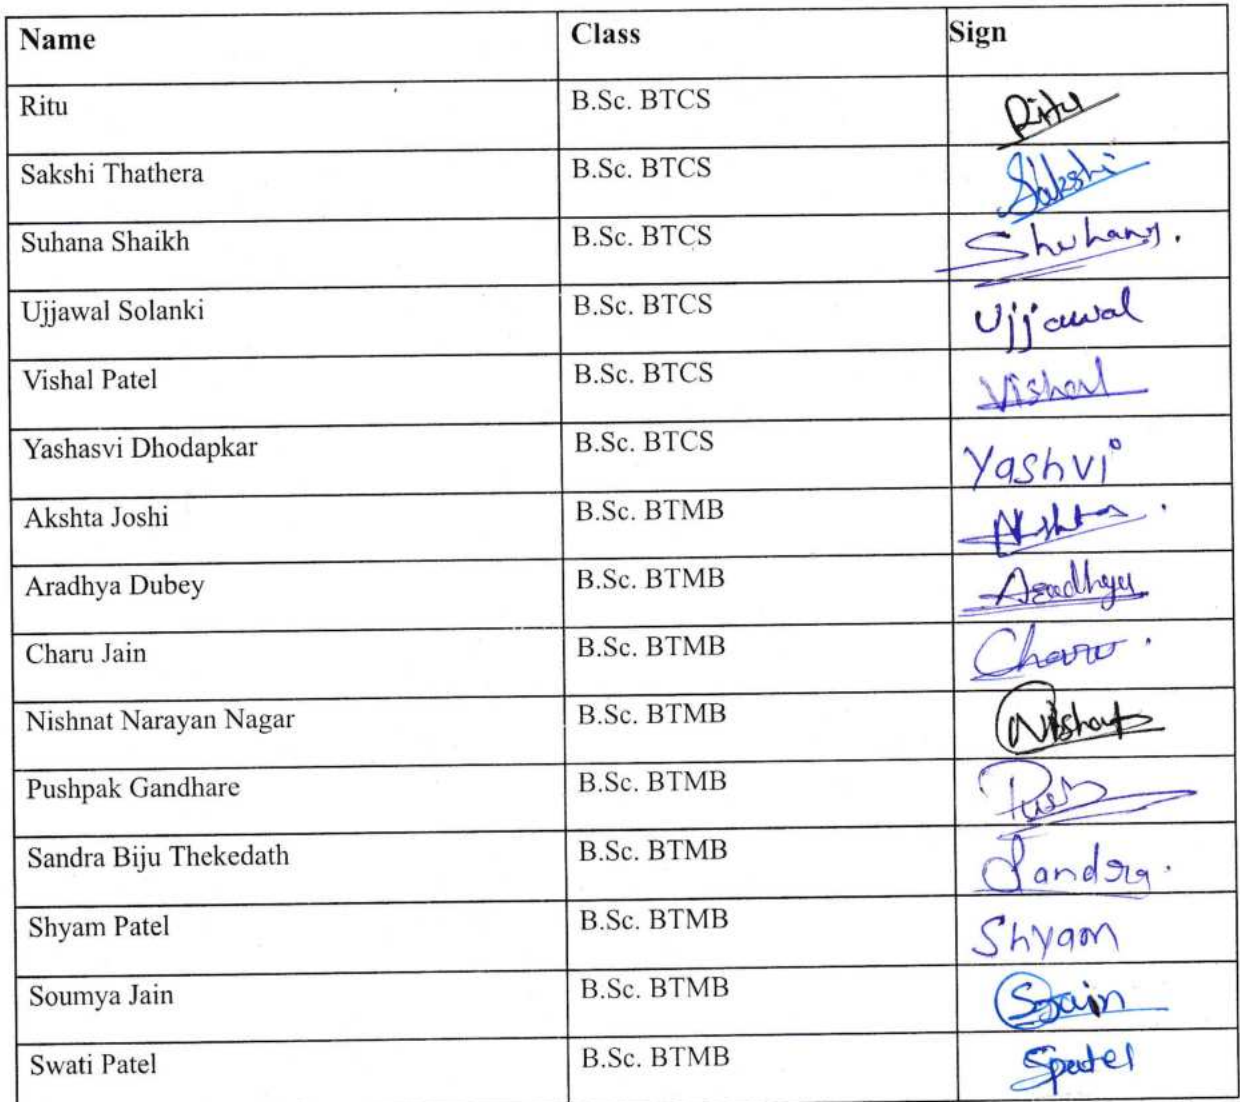 Name Class Sign
Ritu B.Sc. BTCS Ritu
Sakshi Thathera B.Sc. BTCS Sakshi
Suhana Shaikh B.Sc. BTCS
Ujjawal Solanki B.Sc. BTCS Ujjawal
Vishal Patel B.Sc. BTCS Vishal
Yashasvi Dhodapkar B.Sc. BTCS Yashvi
Akshta Joshi B.Sc. BTMB
Aradhya Dubey B.Sc. BTMB Aradhya
Charu Jain B.Sc. BTMB Charu
Nishnat Narayan Nagar B.Sc. BTMB
Pushpak Gandhare B.Sc. BTMB
Sandra Biju Thekedath B.Sc. BTMB Sandra.
Shyam Patel B.Sc. BTMB Shyam
Soumya Jain B.Sc. BTMB SJain
Swati Patel B.Sc. BTMB Spatel